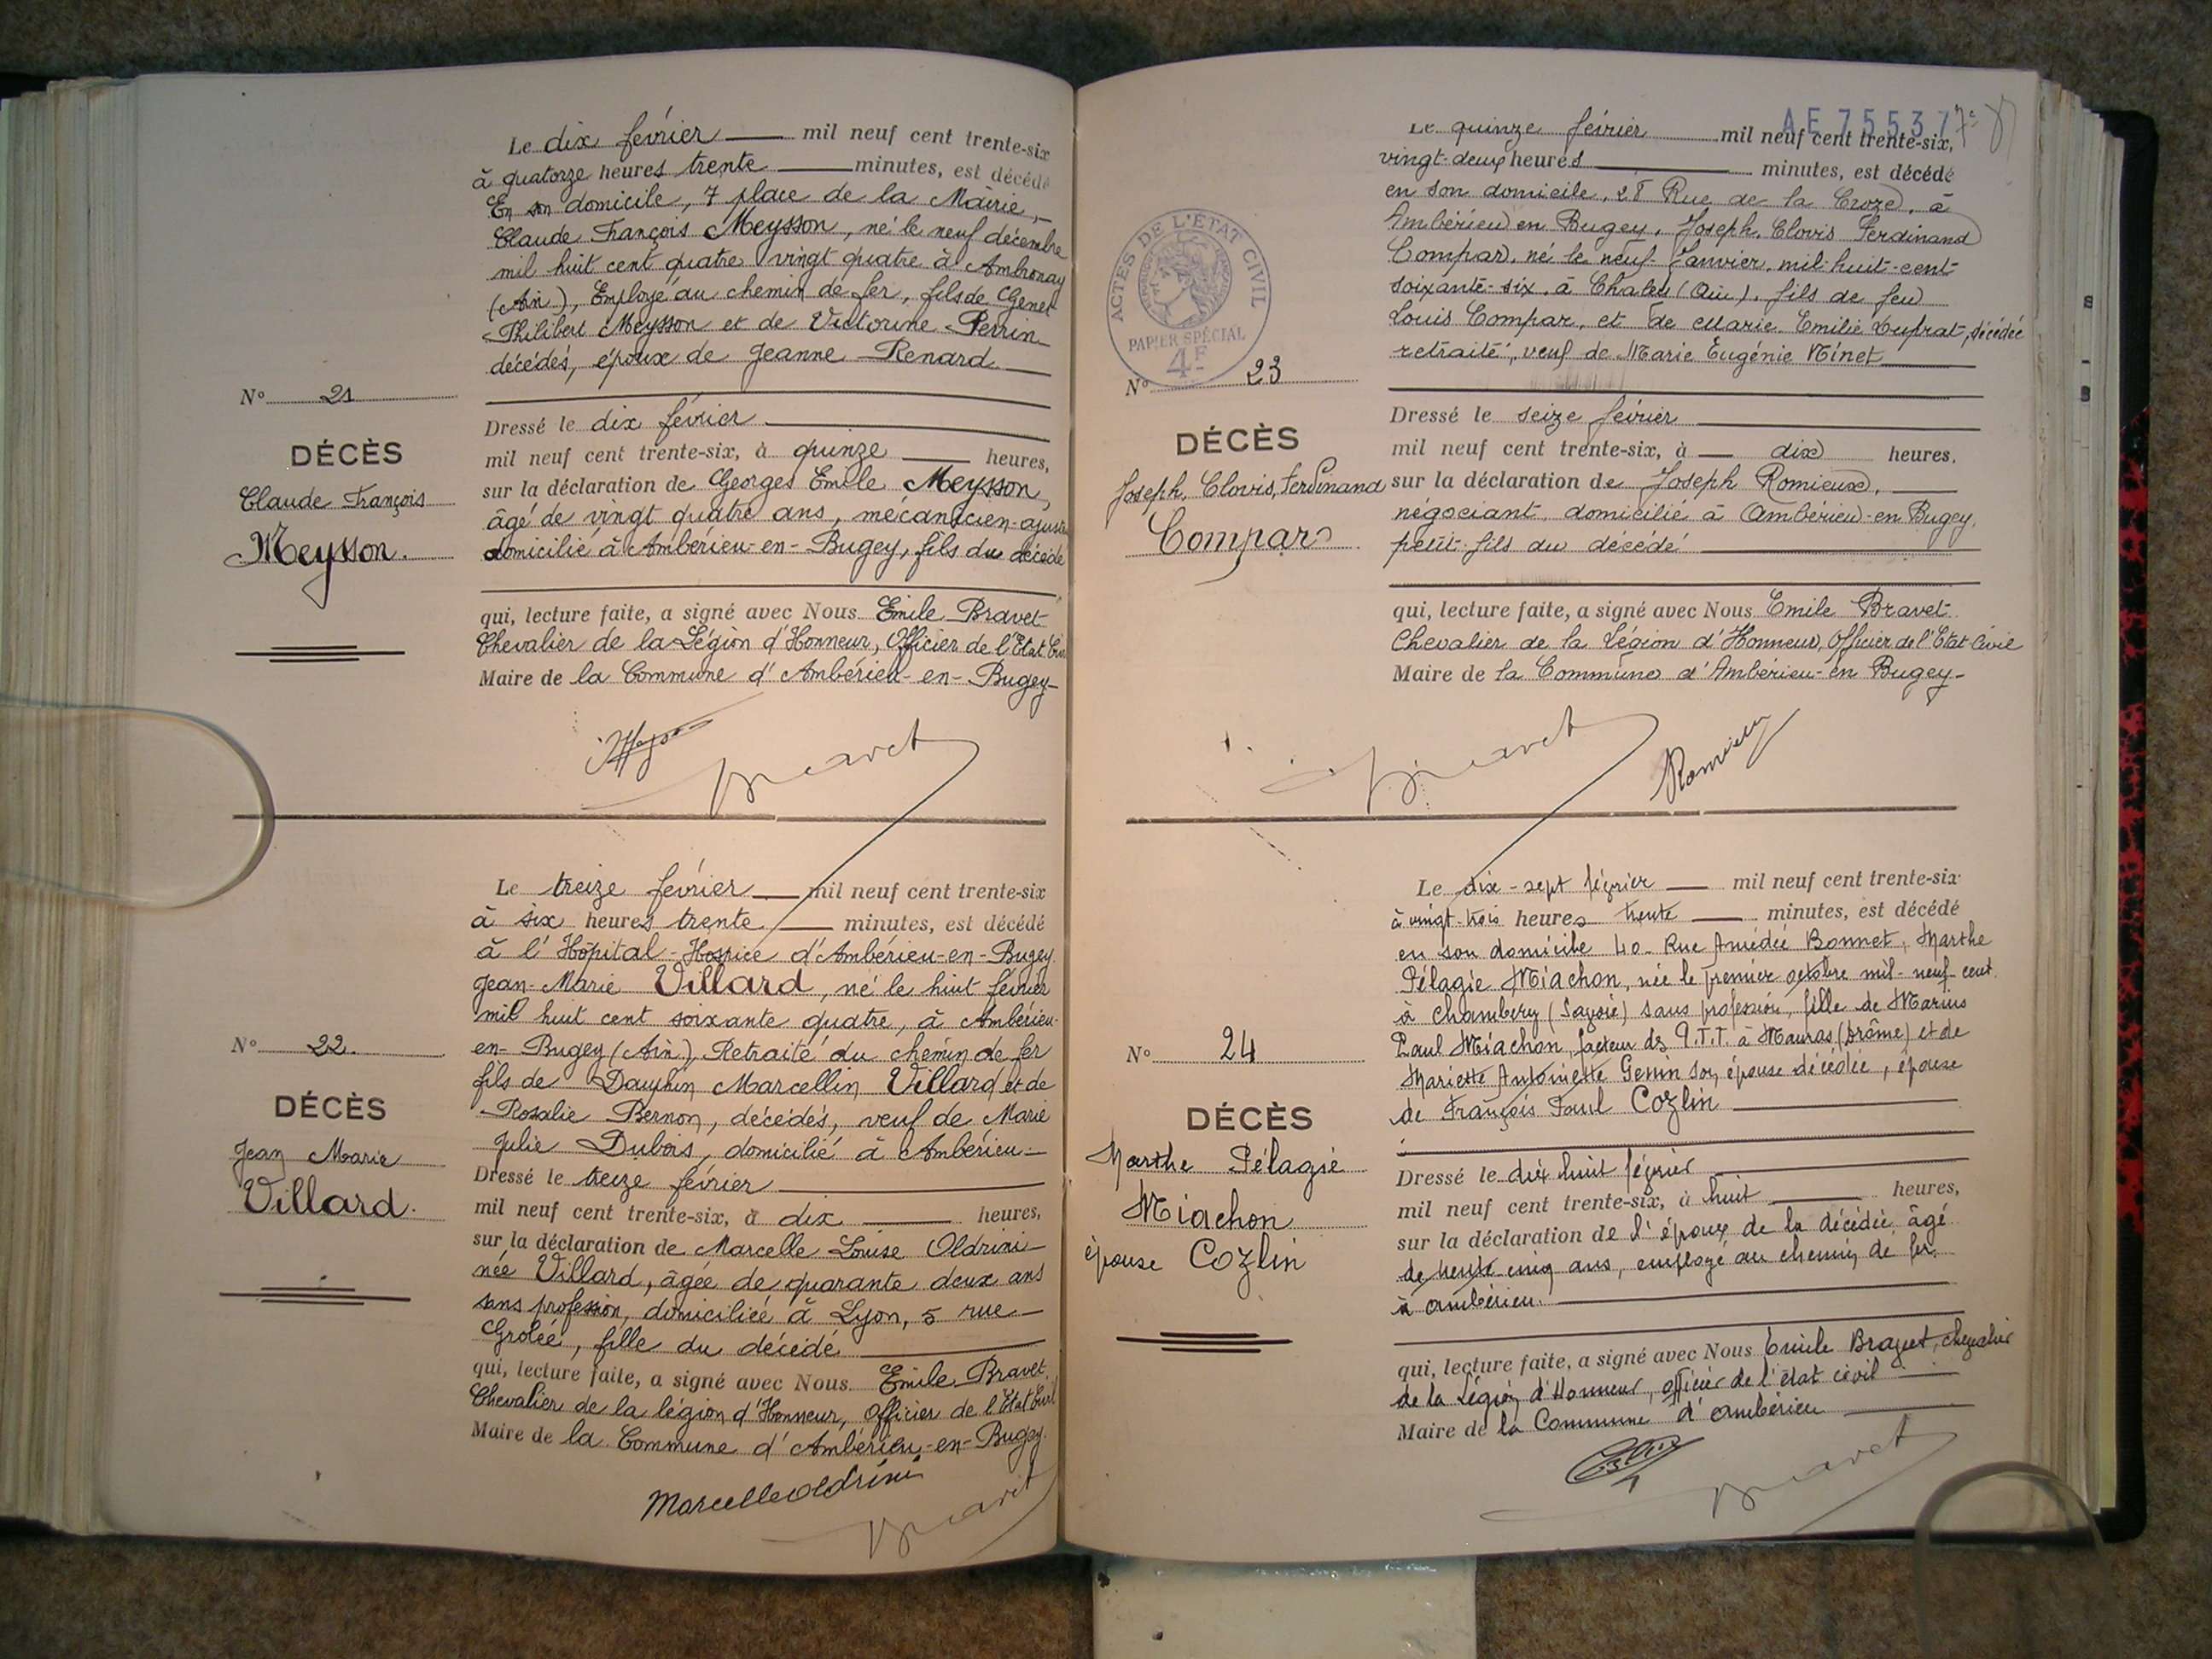 Le dix février mil neuf cent trente-six
à quatorze heures trente minutes, est décédé
En son domicile, 7 place de la Mairie,
Claude François Meysson, né le neuf décembre
mil huit cent quatre vingt quatre à Ambronay
(Ain), Employé au chemin de fer, fils de Genet
Philibert Meysson et de Victorine Perrin
décédés, époux de Jeanne Renard
N° 21
DÉCÈS
Claude François
Meysson.
Dressé le dix février
mil neuf cent trente-six, à quinze heures,
sur la déclaration de Georges Emile Meysson,
âgé de vingt quatre ans, mécanicien-ajusteur
domicilié à Ambérieu-en-Bugey, fils du décédé
qui, lecture faite, a signé avec Nous Emile Bravet
Chevalier de la Légion d'Honneur, Officier de l'Etat Civil
Maire de la Commune d'Ambérieu-en-Bugey
Bravet
Le treize février mil neuf cent trente-six
à six heures trente minutes, est décédé
à l'Hôpital-Hospice d'Ambérieu-en-Bugey
Jean-Marie Villard, né le huit février
mil huit cent soixante quatre, à Ambérieu-
en-Bugey (Ain), Retraité du chemin de fer
fils de Dauphin Marcellin Villard et de
Rosalie Bernon, décédés, veuf de Marie
Julie Dubois, domicilié à Ambérieu-
N° 22.
DÉCÈS
Jean Marie
Villard.
Dressé le treize février
mil neuf cent trente-six, à dix heures,
sur la déclaration de Marcelle Louise Oldrini
née Villard, âgée de quarante deux ans
sans profession, domiciliée à Lyon, 5 rue
Grolée, fille du décédé
qui, lecture faite, a signé avec Nous Emile Bravet,
Chevalier de la légion d'Honneur, Officier de l'Etat Civil
Maire de la Commune d'Ambérieu-en-Bugey.
Marcelle Oldrini
Bravet
AE 75537
Le quinze février mil neuf cent trente-six,
vingt-deux heures minutes, est décédé
en son domicile, 28 Rue de la Croze, à
Ambérieu en Bugey, Joseph, Clovis Ferdinand
Compar, né le neuf Janvier, mil-huit-cent-
soixante-six, à Chaley (Ain), fils de feu
Louis Compar, et de Marie Emilie Duprat, décédée
retraité, veuf de Marie Eugénie Ninet
ACTES DE L'ÉTAT CIVIL
PAPIER SPÉCIAL
4F
N° 23
DÉCÈS
Joseph, Clovis, Ferdinand
Compar
Dressé le seize février
mil neuf cent trente-six, à dix heures.
sur la déclaration de Joseph Romieux,
négociant, domicilié à Ambérieu-en-Bugey,
petit-fils du décédé
qui, lecture faite, a signé avec Nous Emile Bravet
Chevalier de la Légion d'Honneur, Officier de l'Etat-Civil
Maire de la Commune d'Ambérieu-en Bugey-
Bravet
Romieux
Le dix-sept février mil neuf cent trente-six
à vingt-trois heures trente minutes, est décédé
en son domicile 40 Rue Amédée Bonnet, Marthe
Pélagie Miachon, née le premier octobre mil-neuf-cent
à Chambéry (Savoie) sans profession, fille de Marius
Paul Miachon, facteur des P.T.T. à Mauras (Drôme) et de
Mariette Antoinette Genin son épouse décédée, épouse
de François Paul Cozlin
N° 24
DÉCÈS
Marthe Pélagie
Miachon
épouse Cozlin
Dressé le dix huit février
mil neuf cent trente-six, à huit heures,
sur la déclaration de l'époux de la décédée âgé
de trente cinq ans, employé au chemin de fer,
à Ambérieu.
qui, lecture faite, a signé avec Nous Emile Bravet, chevalier
de la Légion d'Honneur, officier de l'état civil
Maire de la Commune d'Ambérieu
Bravet